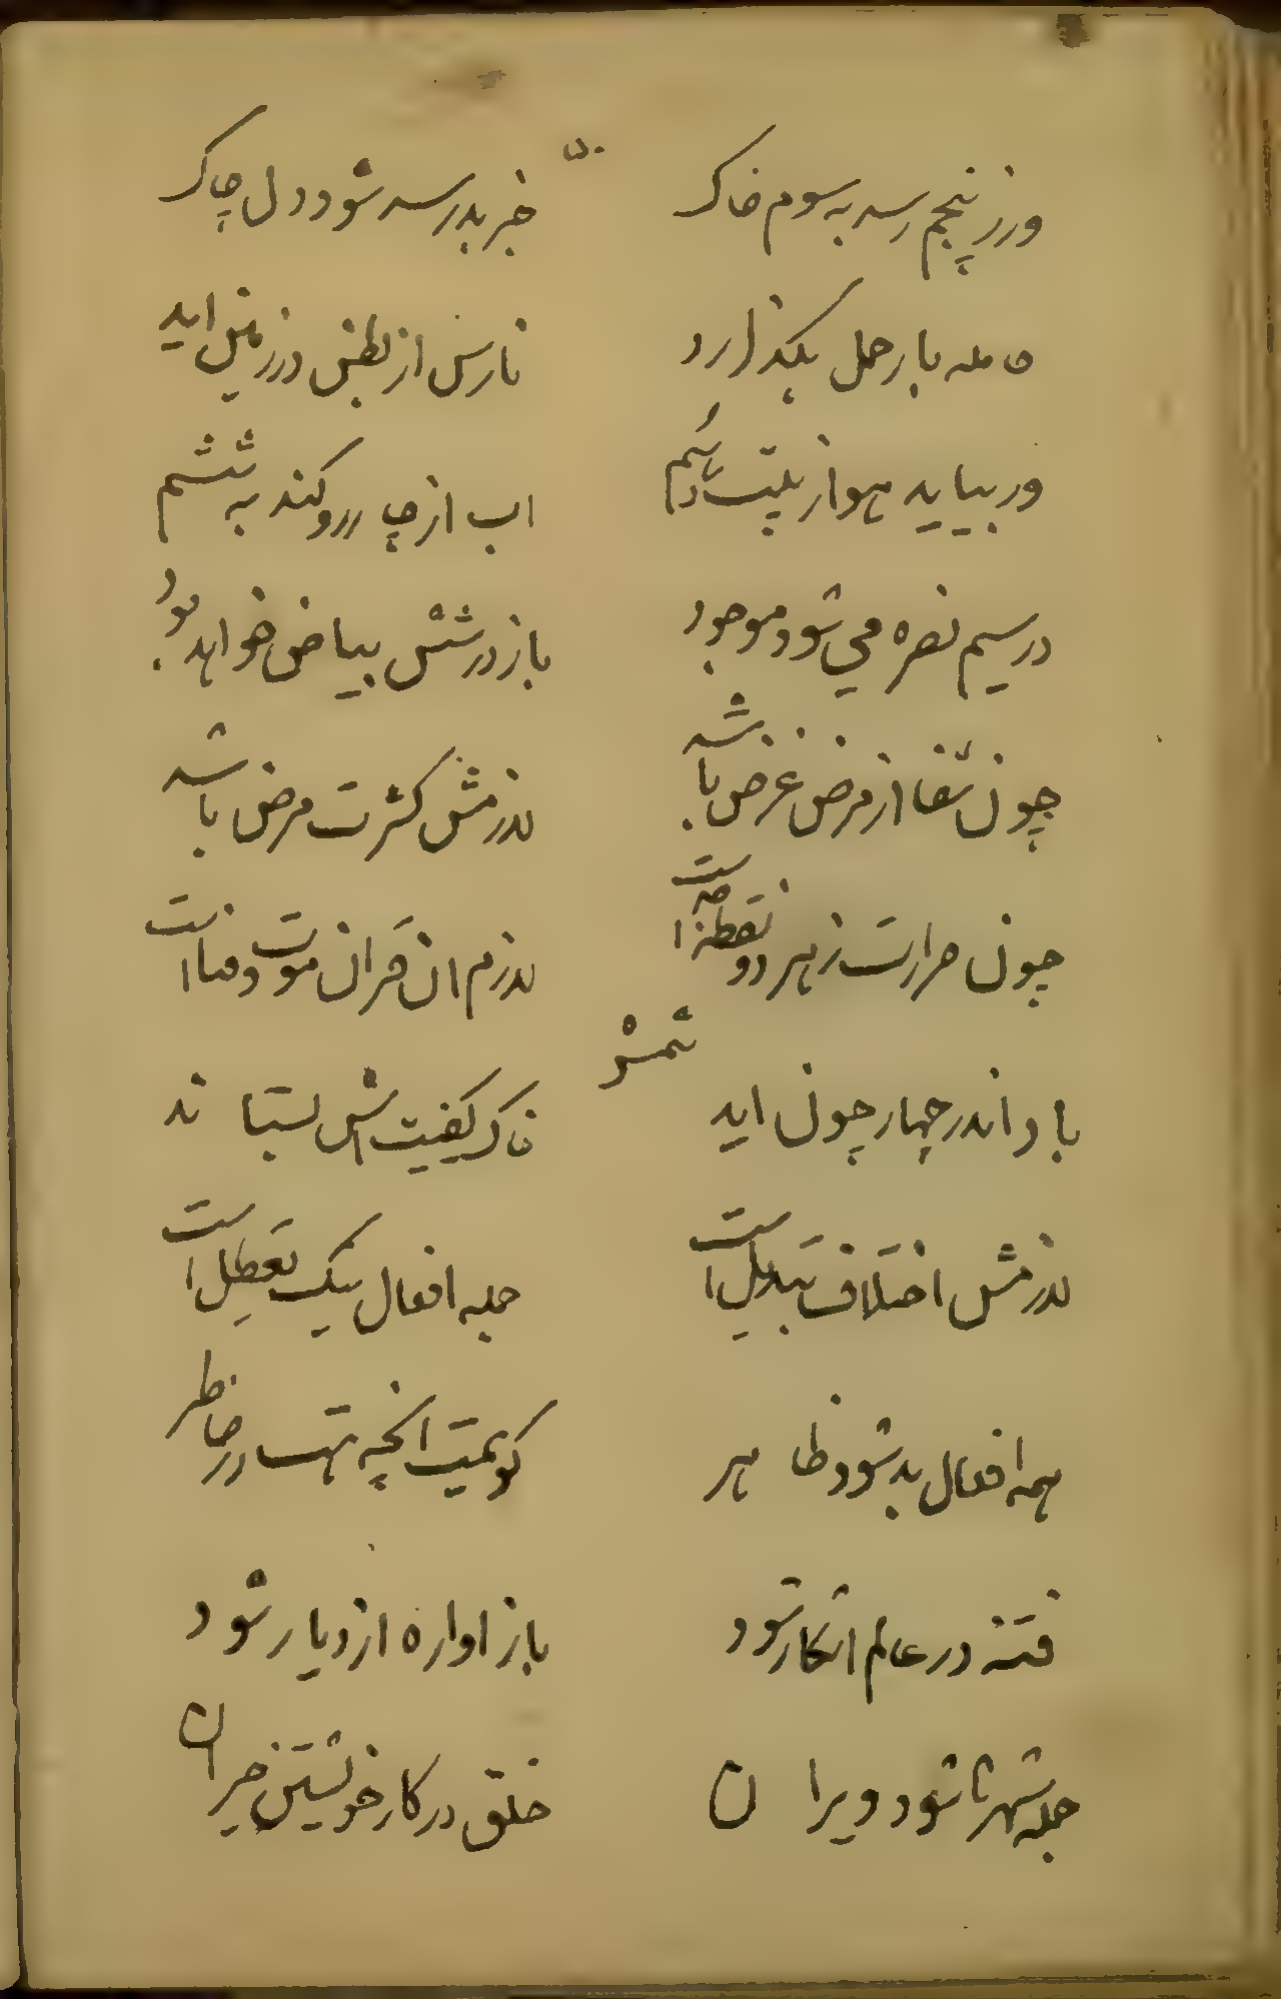 ورز پنجم رسد به سوم خاک
خبر بدرسد شود دل چاک
حامله بار حمل بگذارد
نارس از بطنش در زمین اید
ور بیاید هوا ز بیست دهم
اب از چار رو کند به ششم
درسیم نصره می شود موجود
باز در شش بیاض خواهد بود
چون شفا از مرض غرض باشد
لازمش کثرت مرض باشد
چون حرارت زهر دو نقطه
لازم ان قران موت و فنا است
شمس
باد اندر چهار چون اید
خاک کیفیت اش بستاند
لازمش اختلاف تبدیل است
جمله افعال نیک تعطیل است
همه افعال بد شود ظاهر
گویمت انچه هست در خاطر
فتنه در عالم اشکار شود
باز اواره از دیار شود
جمله شهرها شود ویران
خلق در کار خویشتن حیران